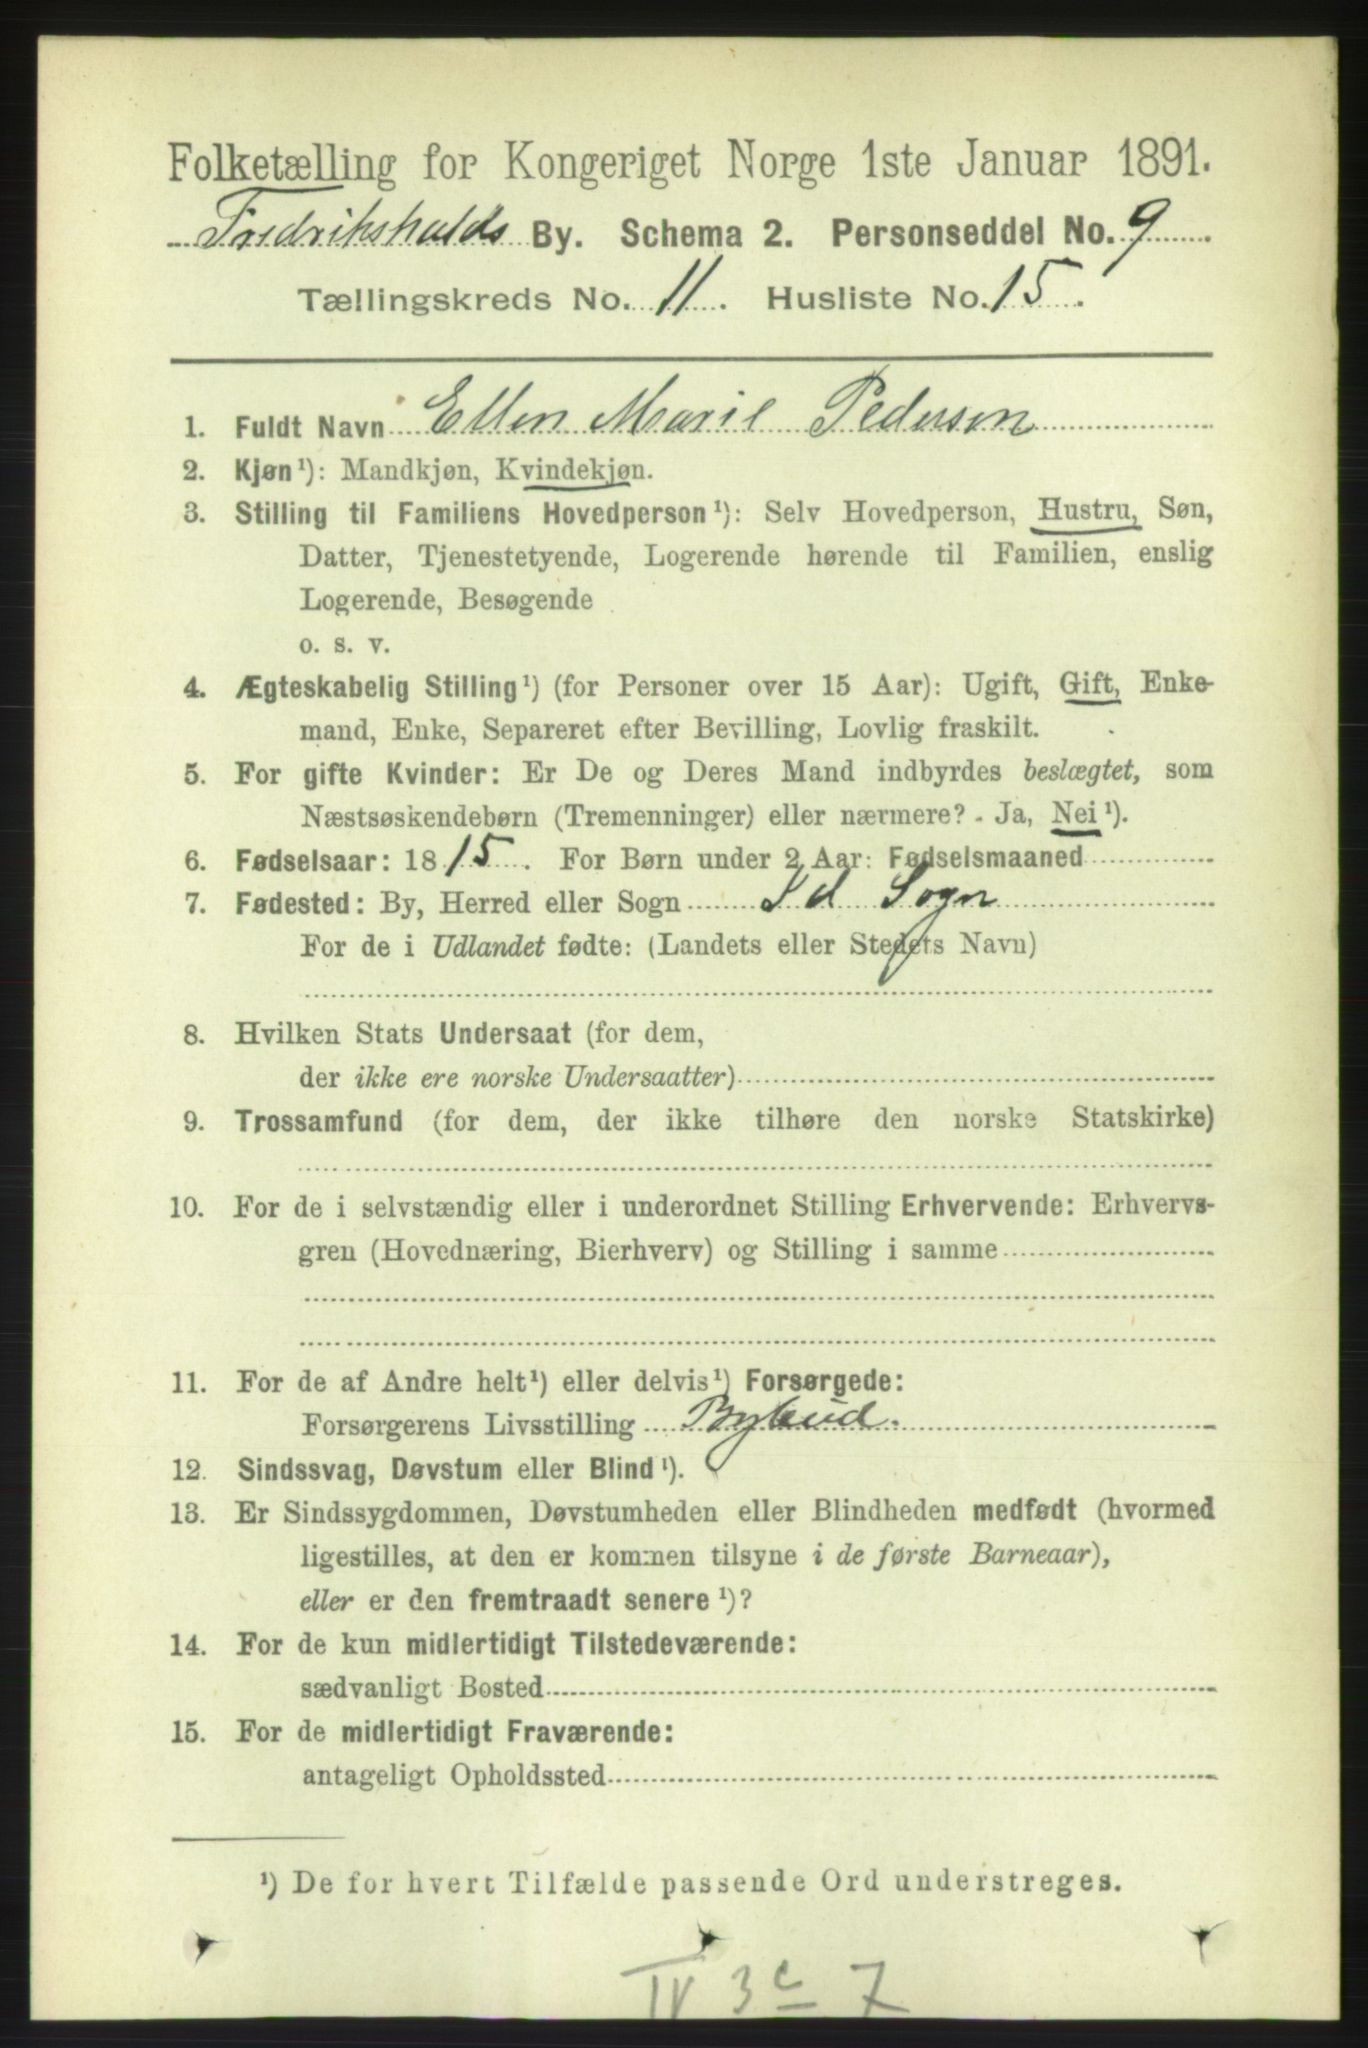 Folketælling for Kongeriget Norge 1ste Januar 1891.
Fredrikshalds By. Schema 2. Personseddel No. 9
Tællingskreds No. 11. Husliste No. 15.
1. Fuldt Navn Ellen Marie Pedersen
2. Kjøn¹): Mandkjøn, Kvindekjøn.
3. Stilling til Familiens Hovedperson¹): Selv Hovedperson, Hustru, Søn,
Datter, Tjenestetyende, Logerende hørende til Familien, enslig
Logerende, Besøgende
o. s. v.
4. Ægteskabelig Stilling¹) (for Personer over 15 Aar): Ugift, Gift, Enke-
mand, Enke, Separeret efter Bevilling, Lovlig fraskilt.
5. For gifte Kvinder: Er De og Deres Mand indbyrdes beslægtet, som
Næstsøskendebørn (Tremenninger) eller nærmere? - Ja, Nei¹).
6. Fødselsaar: 1815. For Børn under 2 Aar: Fødselsmaaned
7. Fødested: By, Herred eller Sogn Id Sogn
For de i Udlandet fødte: (Landets eller Stedets Navn)
8. Hvilken Stats Undersaat (for dem,
der ikke ere norske Undersaatter)
9. Trossamfund (for dem, der ikke tilhøre den norske Statskirke)
10. For de i selvstændig eller i underordnet Stilling Erhvervende: Erhvervs-
gren (Hovednæring, Bierhverv) og Stilling i samme
11. For de af Andre helt¹) eller delvis¹) Forsørgede:
Forsørgerens Livsstilling Bybud.
12. Sindssvag, Døvstum eller Blind¹).
13. Er Sindssygdommen, Døvstumheden eller Blindheden medfødt (hvormed
ligestilles, at den er kommen tilsyne i de første Barneaar),
eller er den fremtraadt senere¹)?
14. For de kun midlertidigt Tilstedeværende:
sædvanligt Bosted
15. For de midlertidigt Fraværende:
antageligt Opholdssted
¹) De for hvert Tilfælde passende Ord understreges.
IV 3c 7